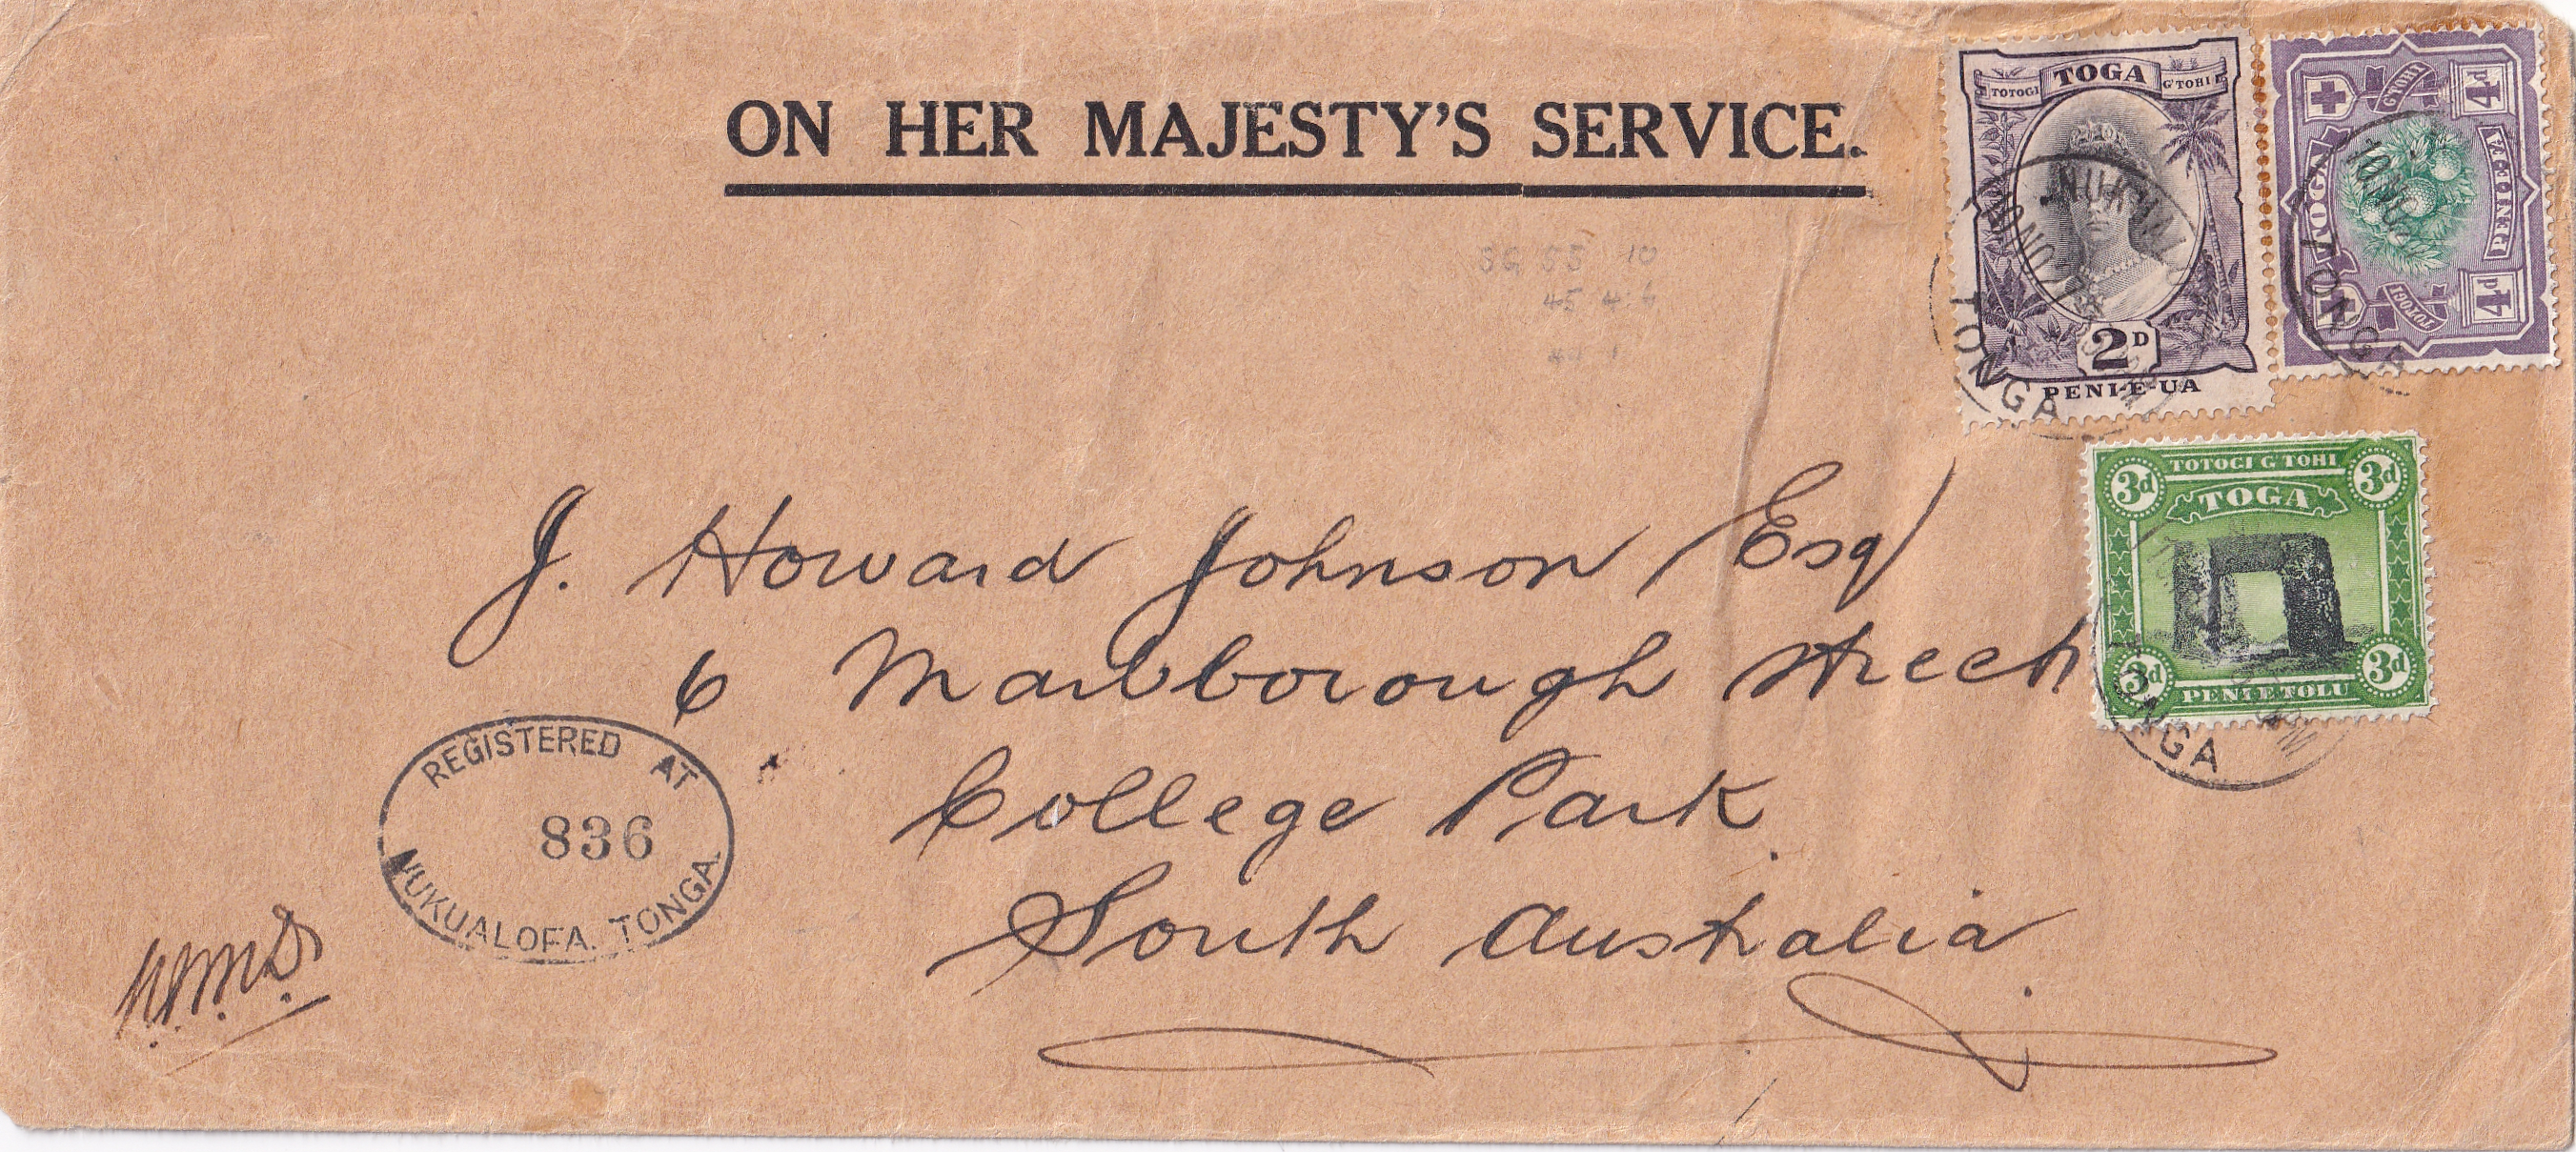 ON HER MAJESTY'S SERVICE.
TOGA
TOTOGI
G'TOHI
2D
PENI-E-UA
TONGA
G'TOHI
4d
TOGA
PENI-E-FA
TOTOGI
4d
TONGA
SG 55 10
45 4
TOTOGI G'TOHI
3d
3d
TOGA
3d
3d
PENI E TOLU
TONGA
J. Howard Johnson Esq
6 Marlborough Street
College Park
South Australia
REGISTERED AT
836
NUKUALOFA. TONGA.